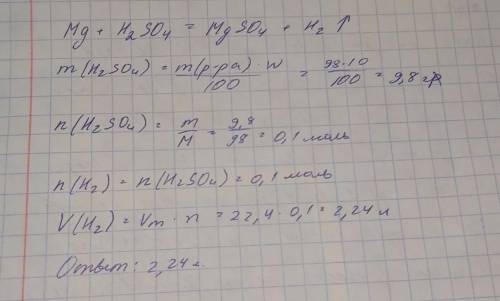 Mg + H₂SO₄ = MgSO₄ + H₂ ↑
m(H₂SO₄) = m(р-ра)·w / 100 = 98·10 / 100 = 9,8 гр
n(H₂SO₄) = m / M = 9,8 / 98 = 0,1 моль
n(H₂) = n(H₂SO₄) = 0,1 моль
V(H₂) = Vm · n = 22,4 · 0,1 = 2,24 л
Ответ: 2,24 л.